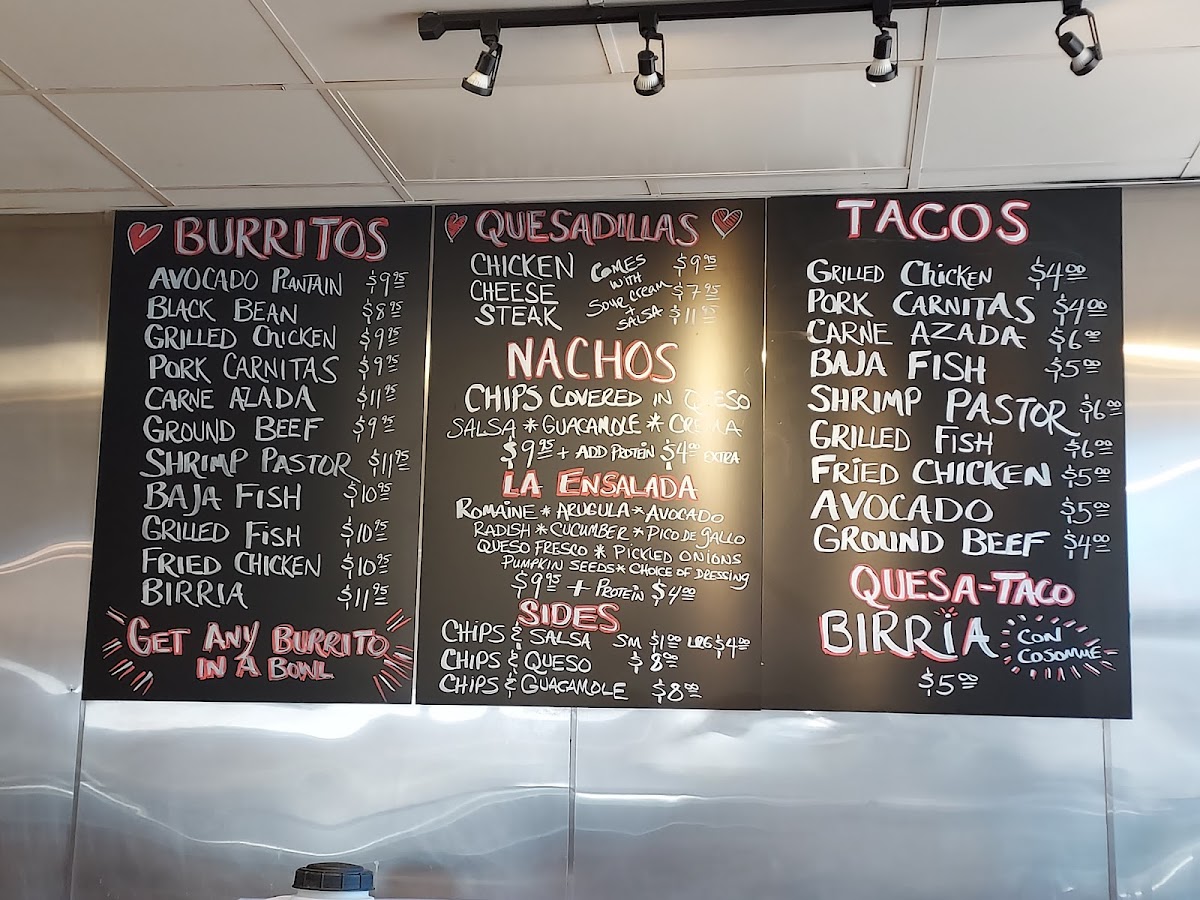 BURRITOS
AVOCADO PLANTAIN $9.95
BLACK BEAN $8.95
GRILLED CHICKEN $9.95
PORK CARNITAS $9.95
CARNE AZADA $11.95
GROUND BEEF $9.95
SHRIMP PASTOR $11.95
BAJA FISH $10.95
GRILLED FISH $10.95
FRIED CHICKEN $10.95
BIRRIA $11.95
GET ANY BURRITO
IN A BOWL
QUESADILLAS
CHICKEN $9.95
CHEESE $7.95
STEAK $11.95
COMES
WITH
SOUR CREAM
+
SALSA
NACHOS
CHIPS COVERED IN QUESO
SALSA * GUACAMOLE * CREMA
$9.95 + ADD PROTEIN $4.00 EXTRA
LA ENSALADA
ROMAINE * ARUGULA * AVOCADO
RADISH * CUCUMBER * PICO DE GALLO
QUESO FRESCO * PICKLED ONIONS
PUMPKIN SEEDS * CHOICE OF DRESSING
$9.95 + PROTEIN $4.00
SIDES
CHIPS & SALSA SM $1.00 LRG $4.00
CHIPS & QUESO $8.00
CHIPS & GUACAMOLE $8.00
TACOS
GRILLED CHICKEN $4.00
PORK CARNITAS $4.00
CARNE AZADA $6.00
BAJA FISH $5.00
SHRIMP PASTOR $6.00
GRILLED FISH $6.00
FRIED CHICKEN $5.00
AVOCADO $5.00
GROUND BEEF $4.00
QUESA-TACO
BIRRIA
CON
COSOMME
$5.00